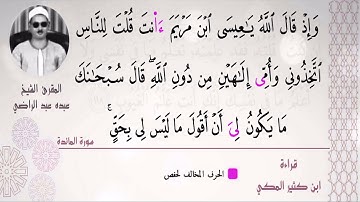 وَإِذْ قَالَ ٱللَّهُ يَـٰعِيسَى ٱبْنَ مَرْيَمَ ءَا۬نتَ قُلْتَ لِلنَّاسِ
ٱتَّخِذُونِى وَأُمِّى إِلَـٰهَيْنِ مِن دُونِ ٱللَّهِ ۖ قَالَ سُبْحَـٰنَكَ
مَا يَكُونُ لِىَ أَنْ أَقُولَ مَا لَيْسَ لِى بِحَقٍّ ۚ
المقرئ الشيخ
عبده عبد الراضي
سورة المائدة
قراءة
ابن كثير المكي
الحرف المخالف لحفص